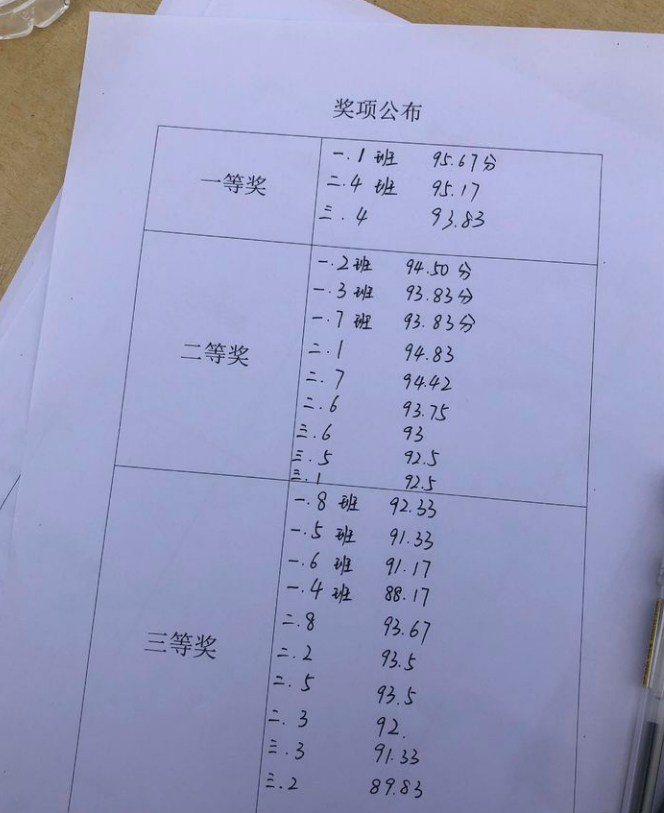 奖项公布
一等奖
一.1班 95.67分
二.4班 95.17
三.4 93.83
二等奖
一.2班 94.50分
一.3班 93.83分
一.7班 93.83分
二.1 94.83
二.7 94.42
二.6 93.75
三.6 93
三.5 92.5
三.1 92.5
三等奖
一.8班 92.33
一.5班 91.33
一.6班 91.17
一.4班 88.17
二.8 93.67
二.2 93.5
二.5 93.5
二.3 92.
三.3 91.33
三.2 89.83